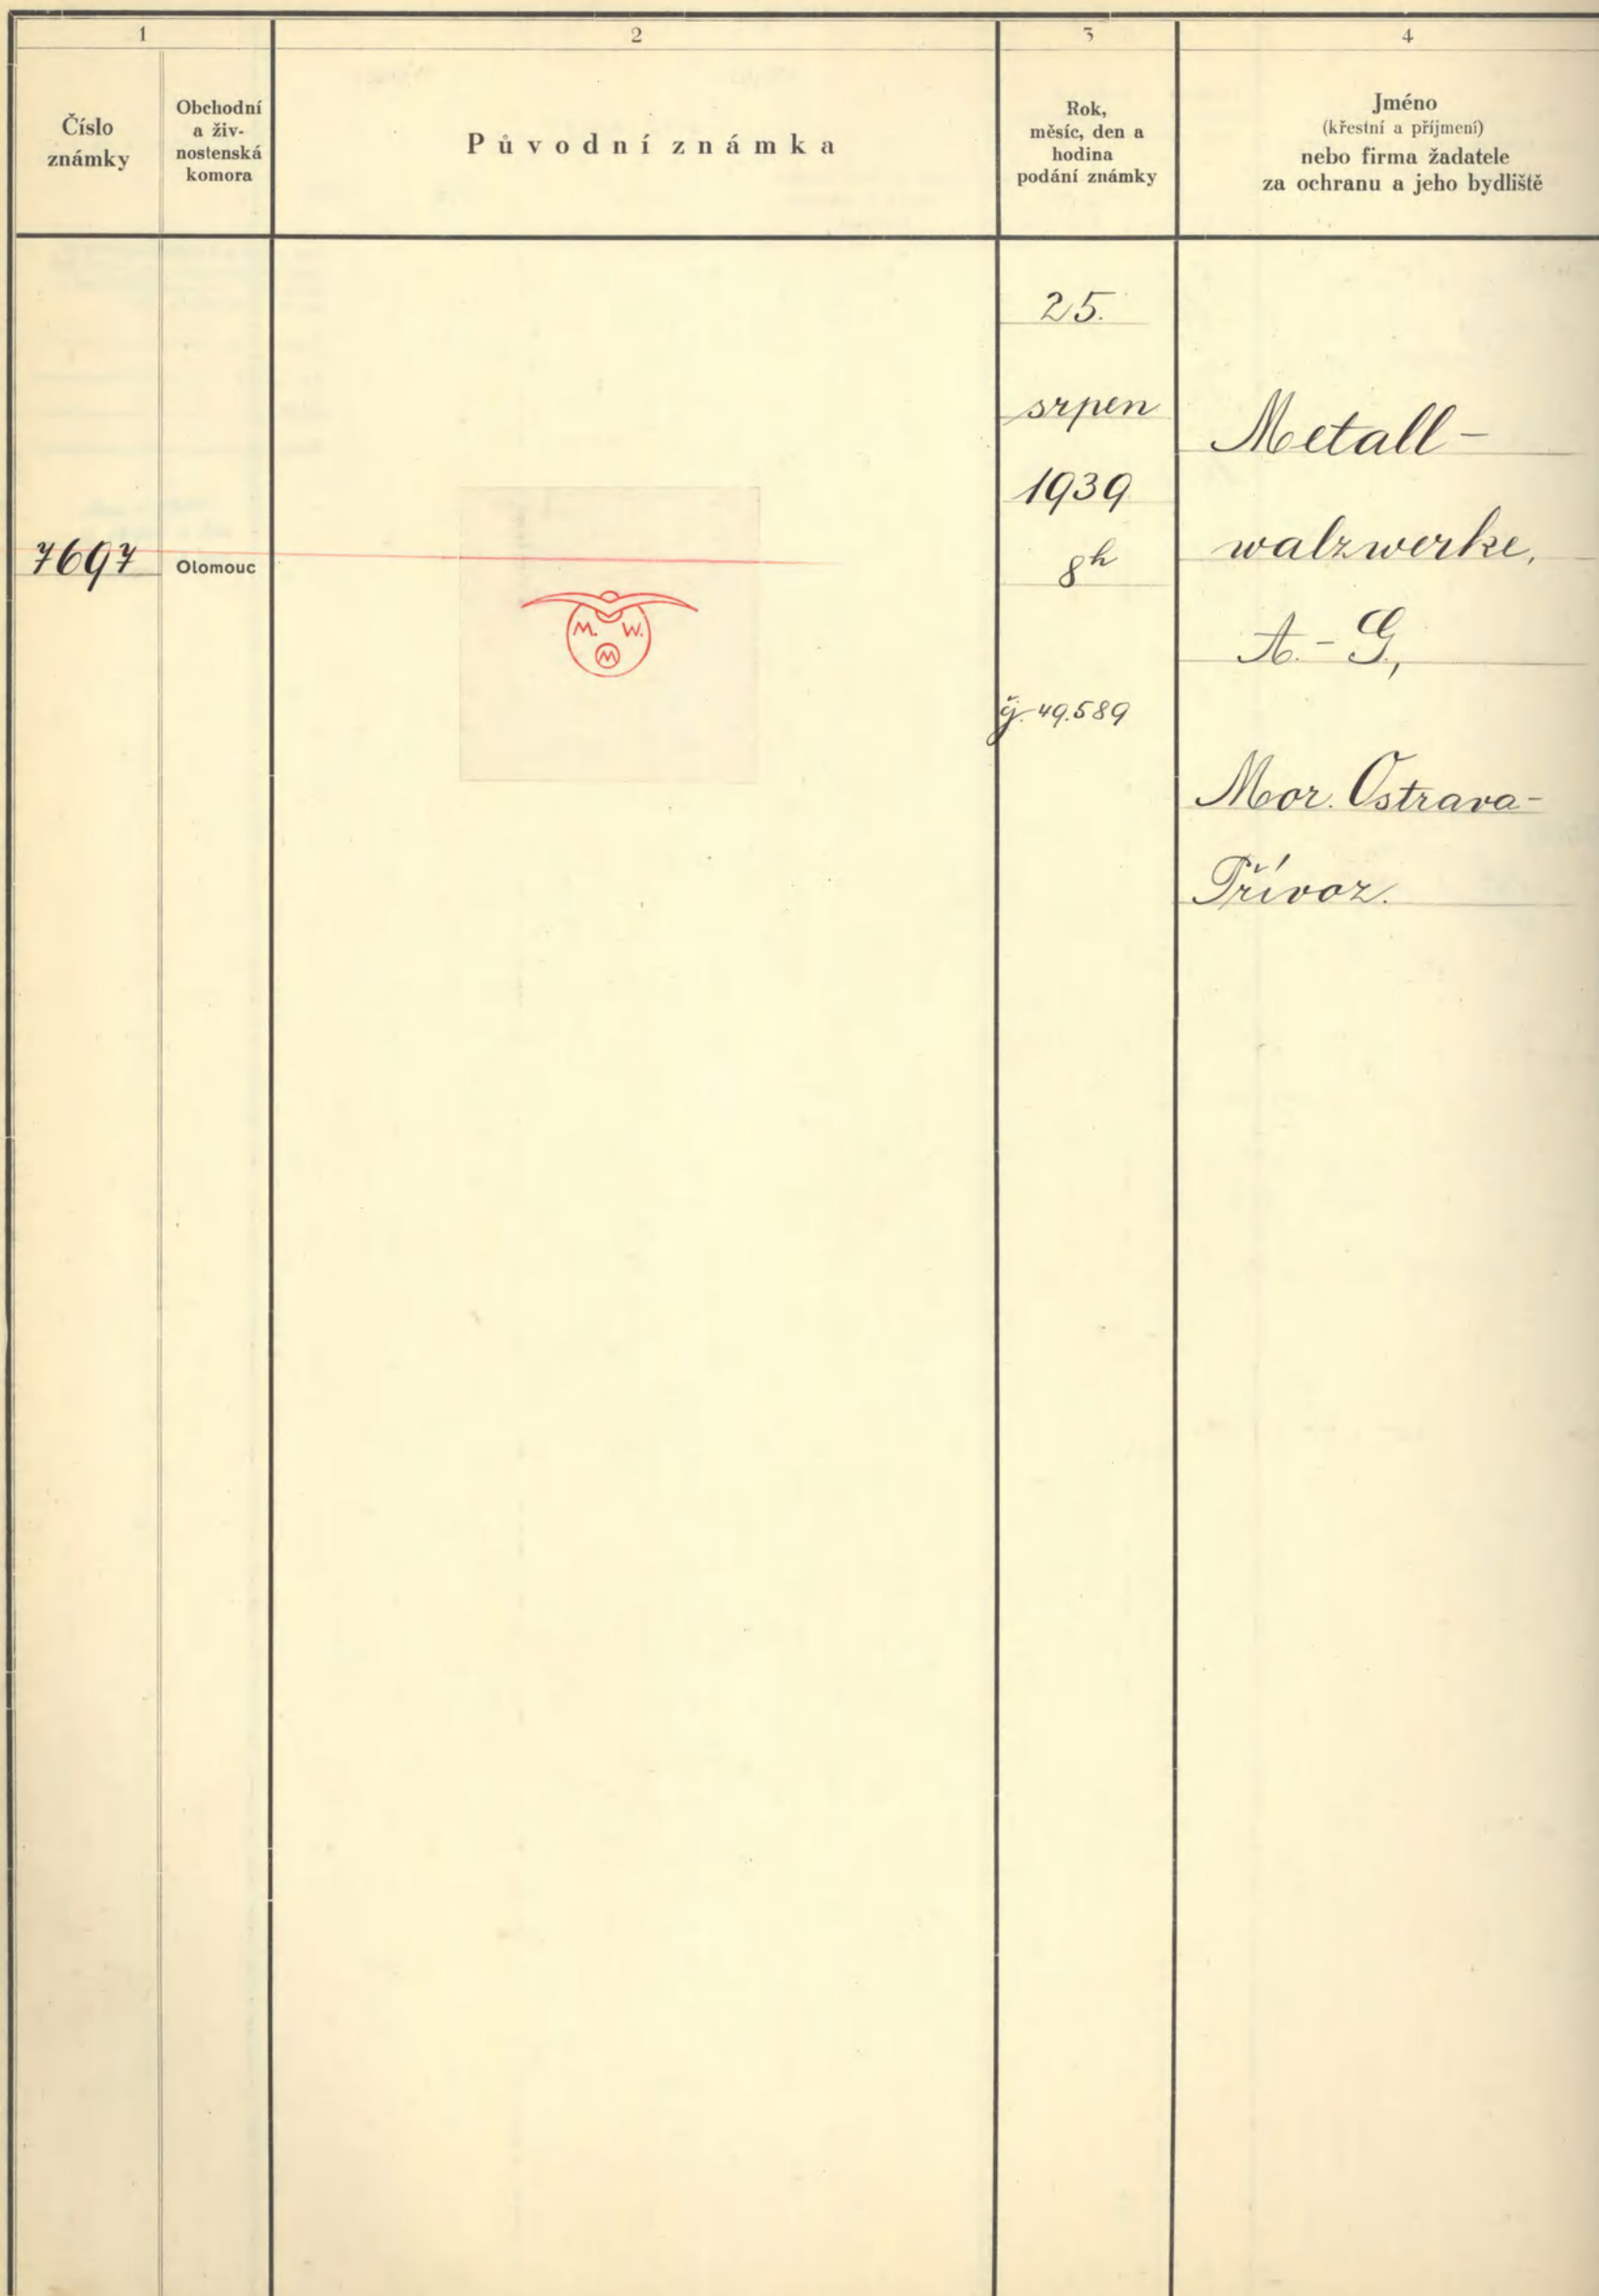 1
2
3
4
Číslo
známky
Obchodní
a živ-
nostenská
komora
Původní známka
Rok,
měsíc, den a
hodina
podání známky
Jméno
(křestní a příjmení)
nebo firma žadatele
za ochranu a jeho bydliště
7697
Olomouc
M. W.
M
25.
srpen
1939
8h
čj. 49.589
Metall-
walzwerke,
A.-G.,
Mor. Ostrava-
Přívoz.